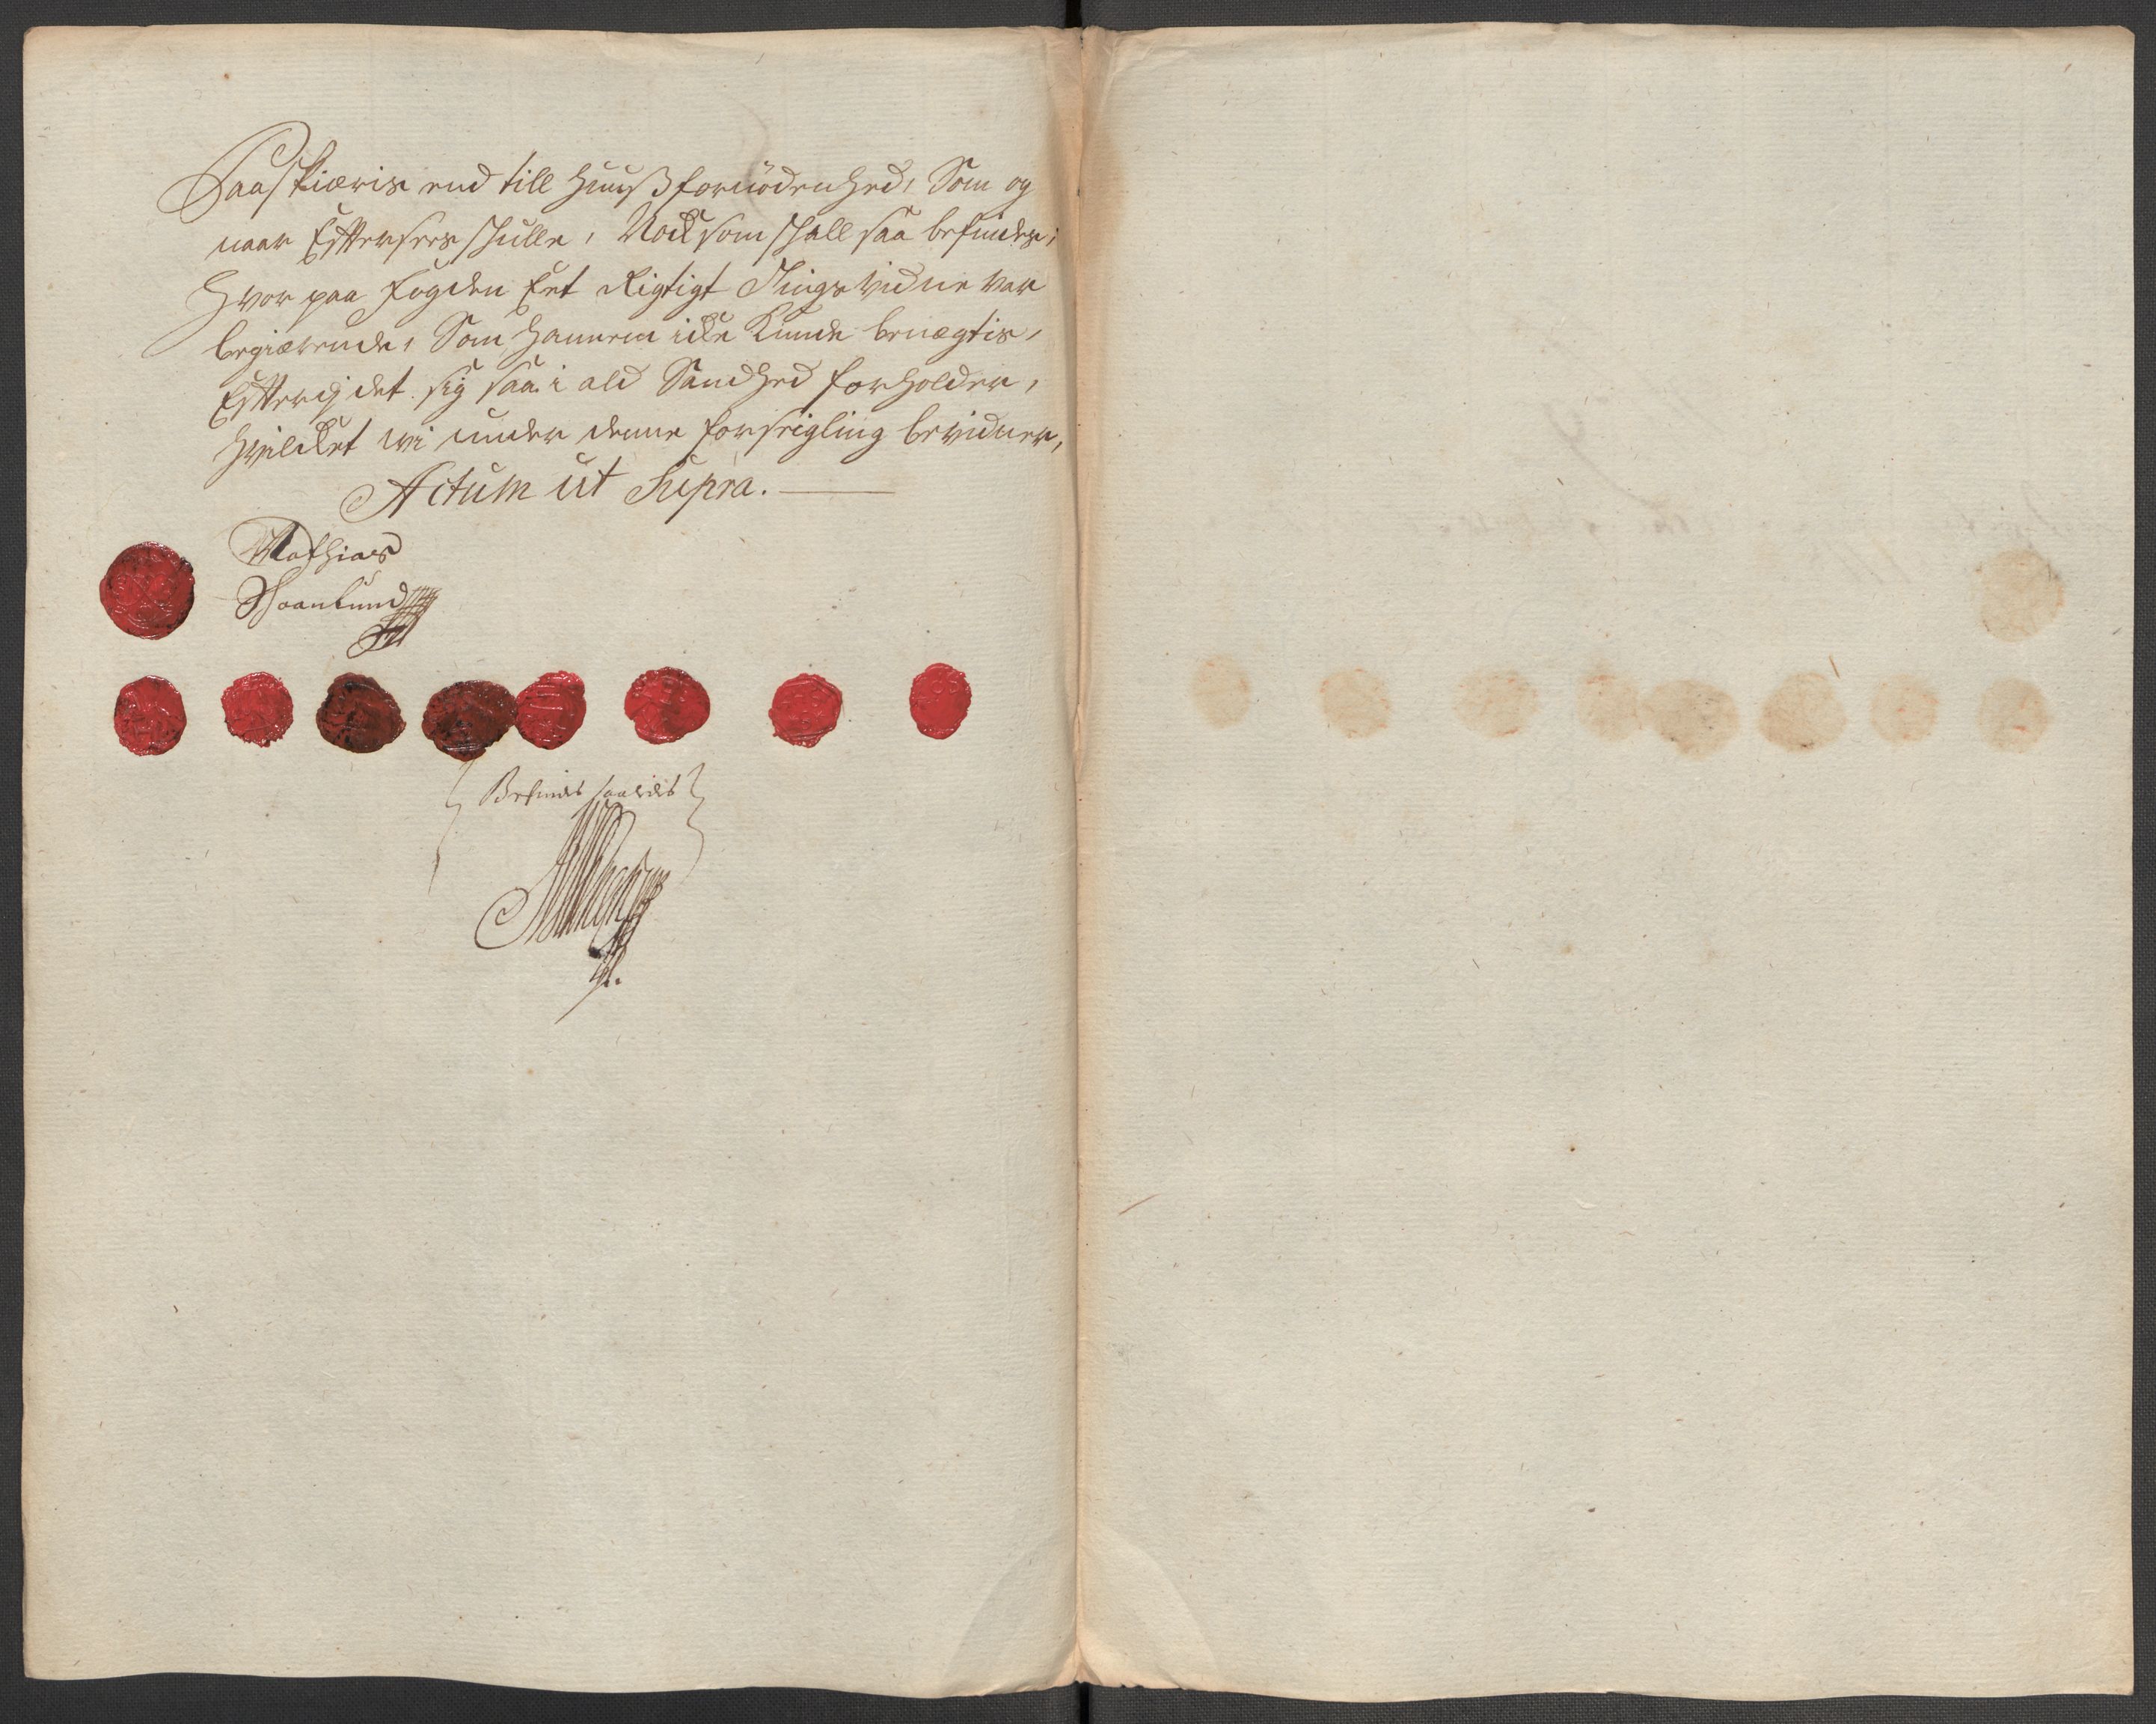 Saaskiæris end till Huuβfornödenhed, Som og
naar Efftersees skulle, Nock som skall saa befindes;
Hvor paa fogden Eet Rigtigt Tingsvidne var
begiærende, Som hannem icke Kunde benægtis,
Effterdj det sig saa i ald Sandhed forholder,
Hvilcket wi under denne forseigling bevidner,
Actum ut Supra.
Mathias
Befindes saaledes